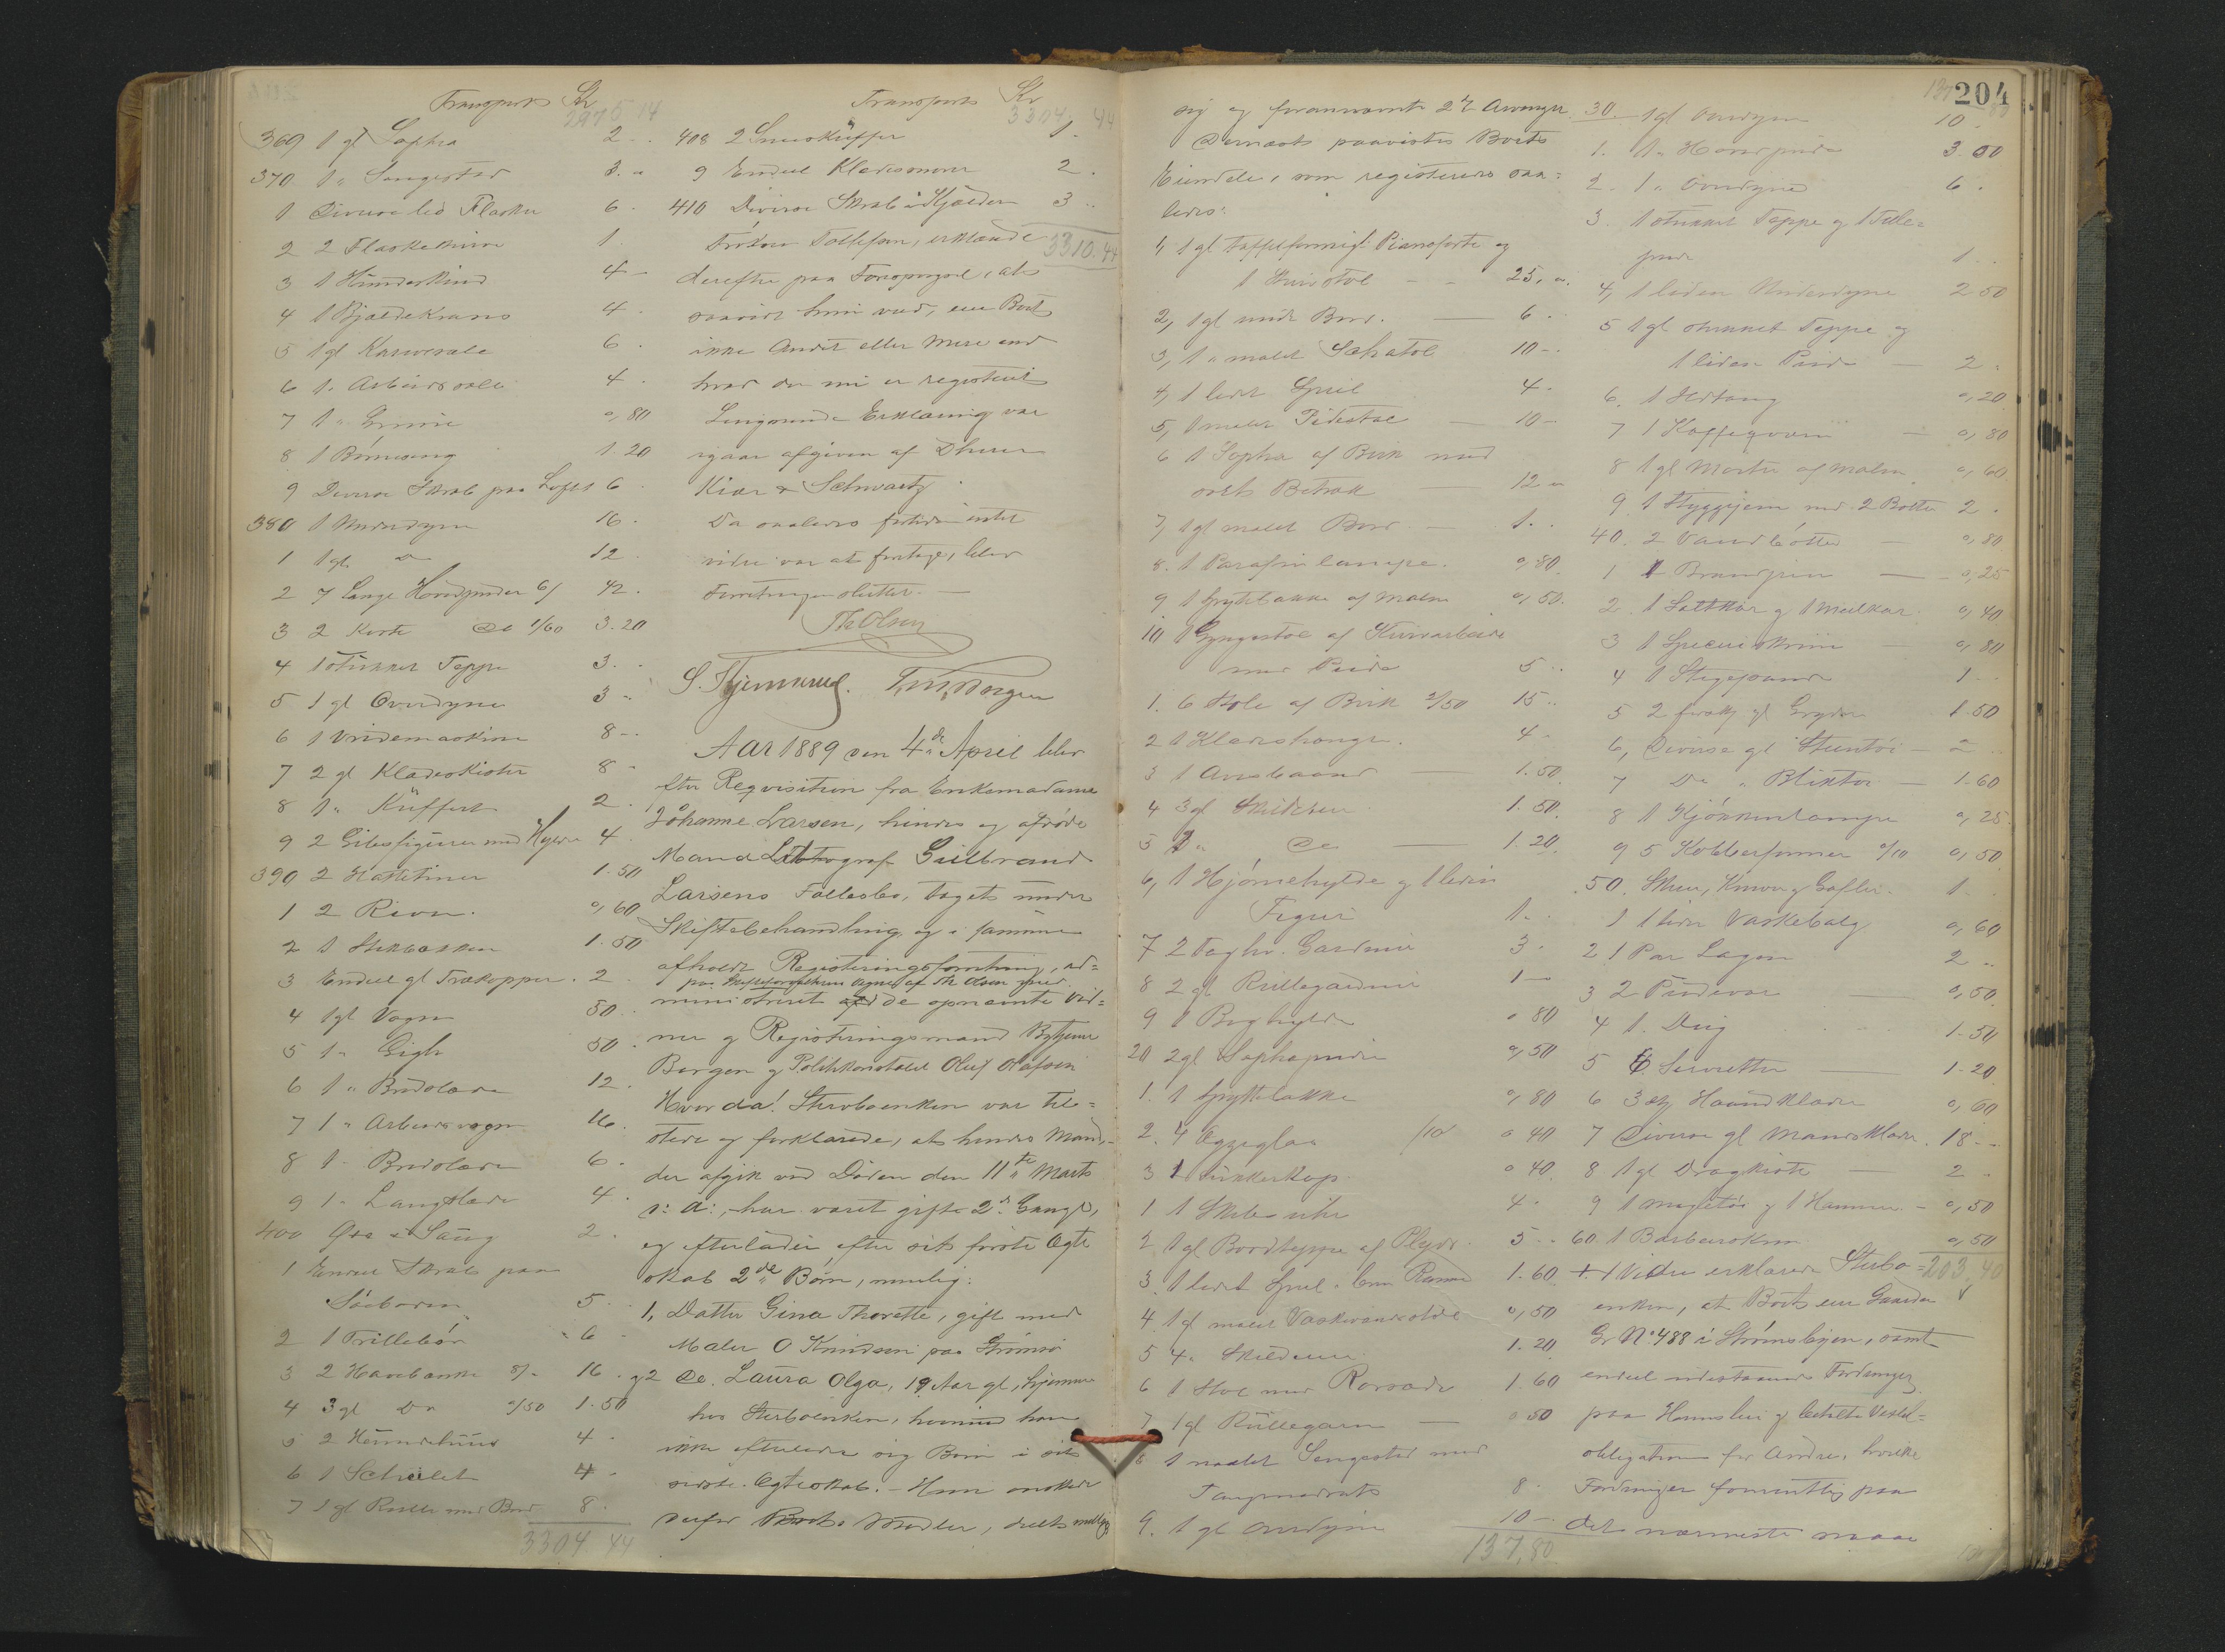 Transport Kr
2975 14
369 1 gl Sopha 2 -
370 1 " Sengested 3. "
1 Diverse led Flasker 6 -
2 2 Flaskekurve 1.
3 1 Hundeskind 4 -
4 1 Bjældekrans 4 -
5 1 gl Karivolsele 6.
6 1. Arbeidssele 4.
7 1 " Grime 0,80
8 1 Børneseng 1.20
9 Diverse Skrab paa Loftet 6
380 1 Underdyne 16.
1 1 gl. Do 12
2 7 Lange Hovedpuder 6/ 42.
3 2 Korte Do 1/60 3.20
4 1 stukket Teppe 3. -
5 1 gl Overdyne 3 -
6 1 Vridemaskine 8 -
7 2 gl Klædeskister 8 -
8 1 " Kuffert 2.
9 2 Gibsfigurer med Hylder 4
390 2 Hattetiner 1.50
1 2 River. 0,60
2 1 1.50
3 Endeel gl Trækopper. 2
4 1 gl Vogn 50 -
5 1 " Gigh 50 -
6 1 " Bredslæde 12.
7 1 " Arbeidsvogn 16.
8 1 - Bredslæde 6 -
9 1 - Langslæde 4.
400 2.
1 Endeel Skrab paa
Søeboden 5 -
2 1 Trillebør 6 -
3 2 Havebænke 8/- 16.
4 3 gl Do 0/50 1.50
5 2 Hundehuus 4 -
6 1 4 -
7 1 gl Rulle med Bord 8.
3304 44
Transport Kr
3304 44
408 2 Snuskuffer 1.
9 Endeel Klædesnorer 2.
410 Diverse Skrab i Kjælder 3 ..
3310.44
Frøken Tollefsen, erklærede
derefter paa Forespørgsel, at
saavidt hun ved, eier Boet
ikke Andet eller Mere end
hvad der nu er registreret
Ligesaadan Erklæring var
igaar afgiven af D'Hrr
Kiær & Schwartz.
Da saaledes fortiden intet
videre var at foretage, blev
Forretningen sluttet. —
Th Olsen
S. Borgen
Aar 1889 den 4de April blev
efter Requisition fra Enkemadame
Johanne Larsen, hendes og afdøde
Mand Lithograf Gulbrand
Larsens Fællesbo, taget under
Skiftebehandling og i samme
afholdt Registreringsforretning, ad=
paa Skifteforvalterens Vegne af Th Olsen med
ministreret af de opnævnte Vid=
ner og Registreringsmænd Bytjener
Borgen og Politikonstabel Oluf Olafsen
Hvorda! Sterboenken var til=
stede og forklarede, at hendes Mand,
der afgik ved Døden den 11te Marts
d: A:, har været gift 2de Gange,
og efterlader efter sit første Ægte
skab 2de Børn, nemlig:
1, Datter Gina Thorette, gift med
Maler O Knudsen paa Strømsø
g 2 Do. Laura Olga, 19 Aar gl, hjemme
hos Sterboenken, hvorimod han
ikke efterlader sig Børn i sit
sidste Ægteskab. - Hun ønsker
derfor Boets Midler, deelt mellem
204
137 80
sig og forannævnte 2de Arvinger.
Dernæst paavistes Boets
Eiendele, som registreredes saa=
ledes:
1, 1 gl taffelformigt Pianoforte og
1 Skruestol - - 25, ".
2, 1 gl rundt Bord. — 6 -
3, 1 " malet Schatol 10 - -
4, 1 lidet Speil 4 -
5, 1 malet Pidestal — 10 -
6 1 Sopha af Birk med
sort Betræk — 12 "
7, 1 gl malet Bord. — 1. .
8. 1 Parafinlampe. 0,80
9 1 Spyttebakke af Malm 0,50.
10 1 Gyngestol af Kurvarbeide
med Pude 5 - -
1. 6 Stole af Birk 2/50 15 - -
2 1 Klædeshænger. 4 -
3 1 — 1.50
4 3 gl Skilderier 1.50.
5 2 " Do — 1.20
6, 1 Hjørnehylde og 1 liden
Figur 1. .
7 2 Fag hv. Gardiner 3 -
8 2 gl Rullegardiner 1 —
9 1 Boghylde 0 80
20 2 gl Sophapuder 0,50
1. 1 Spyttebakke 0,80
2. 4 Æggeglas /10 0 40
3 1 Sukkerkop 0 40
1 1 Skibsuhr 4 -
2 1 gl Bordteppe af Plyds. 5 - -
3 1 lidet Speil i brun Ramme 1.60
4. 1 gl malet Vaskevandstol 0,50
5 4 " Skilderier. 1.20
6 1 Stol med Rørsæde 1.60
7 1 gl Rullegardin — 0 50
8 1 malet Sengested med
Tangmadrats 8 -
9. 1 gl Overdyne 10 -
137,80
30. 1 gl Overdyne 10 -
1. 1 " Hovedpude 3.00
2. 1 " Overdyne 6 -
3 1 stukket Teppe og 1 Felle-
pude 1 - -
4, 1 liden Underdyne 2 50
5 1 gl stukket Teppe og
1 liden Pude — 2 -
6. 1 Ildtang 0,20
7 1 Kaffeqværn — 0,80
8 1 gl Morter af Malm 0,60
9. 1 Stygjern med 2 Bolter 2.
40. 2 Vandbøtter — 0,80
1 1 Brændjern — 0,25
2. 1 Saltkar og 1 Meelkar. 0,40
3 1 Specieskrin — 0,80
4 1 Stegepande 1 - -
5 2 forskj gl Gryder 1.50
6, Diverse gl Steentøi — 2 ..
7 Do " Bliktøi — 1.60
8 1 Kjøkkenlampe 0,25.
9 5 Kobberformer 0/10 0,50
50. Skeer, Knive og Gafler. 1 -
1 1 liden Vaskebalg 0,60
2 1 Par Lagen 2 ..
3 2 Pudevar — 0,50
4 1. Dug 1.50
5 6 Servietter — 1.20
6 3 stk Haandklæder 0,60
7 Diverse gl Mandsklæder. 18 - -
8 1 gl Dragkiste — 2 ..
9 1 og 1 Hammer. - 0,50
60. 1 Barbeerskrin 0,50
+ 1 Videre erklærede Sterbo = 203.40
enken, at Boet eier Gaarden
Gr No 488 i Strømsbyen, samt
endeel udestaaende Fordringer
paa Huusleie og betalte Vexel=
obligationer for Andre, hvilke
Fordringer formentlig paa
det nærmeste maae